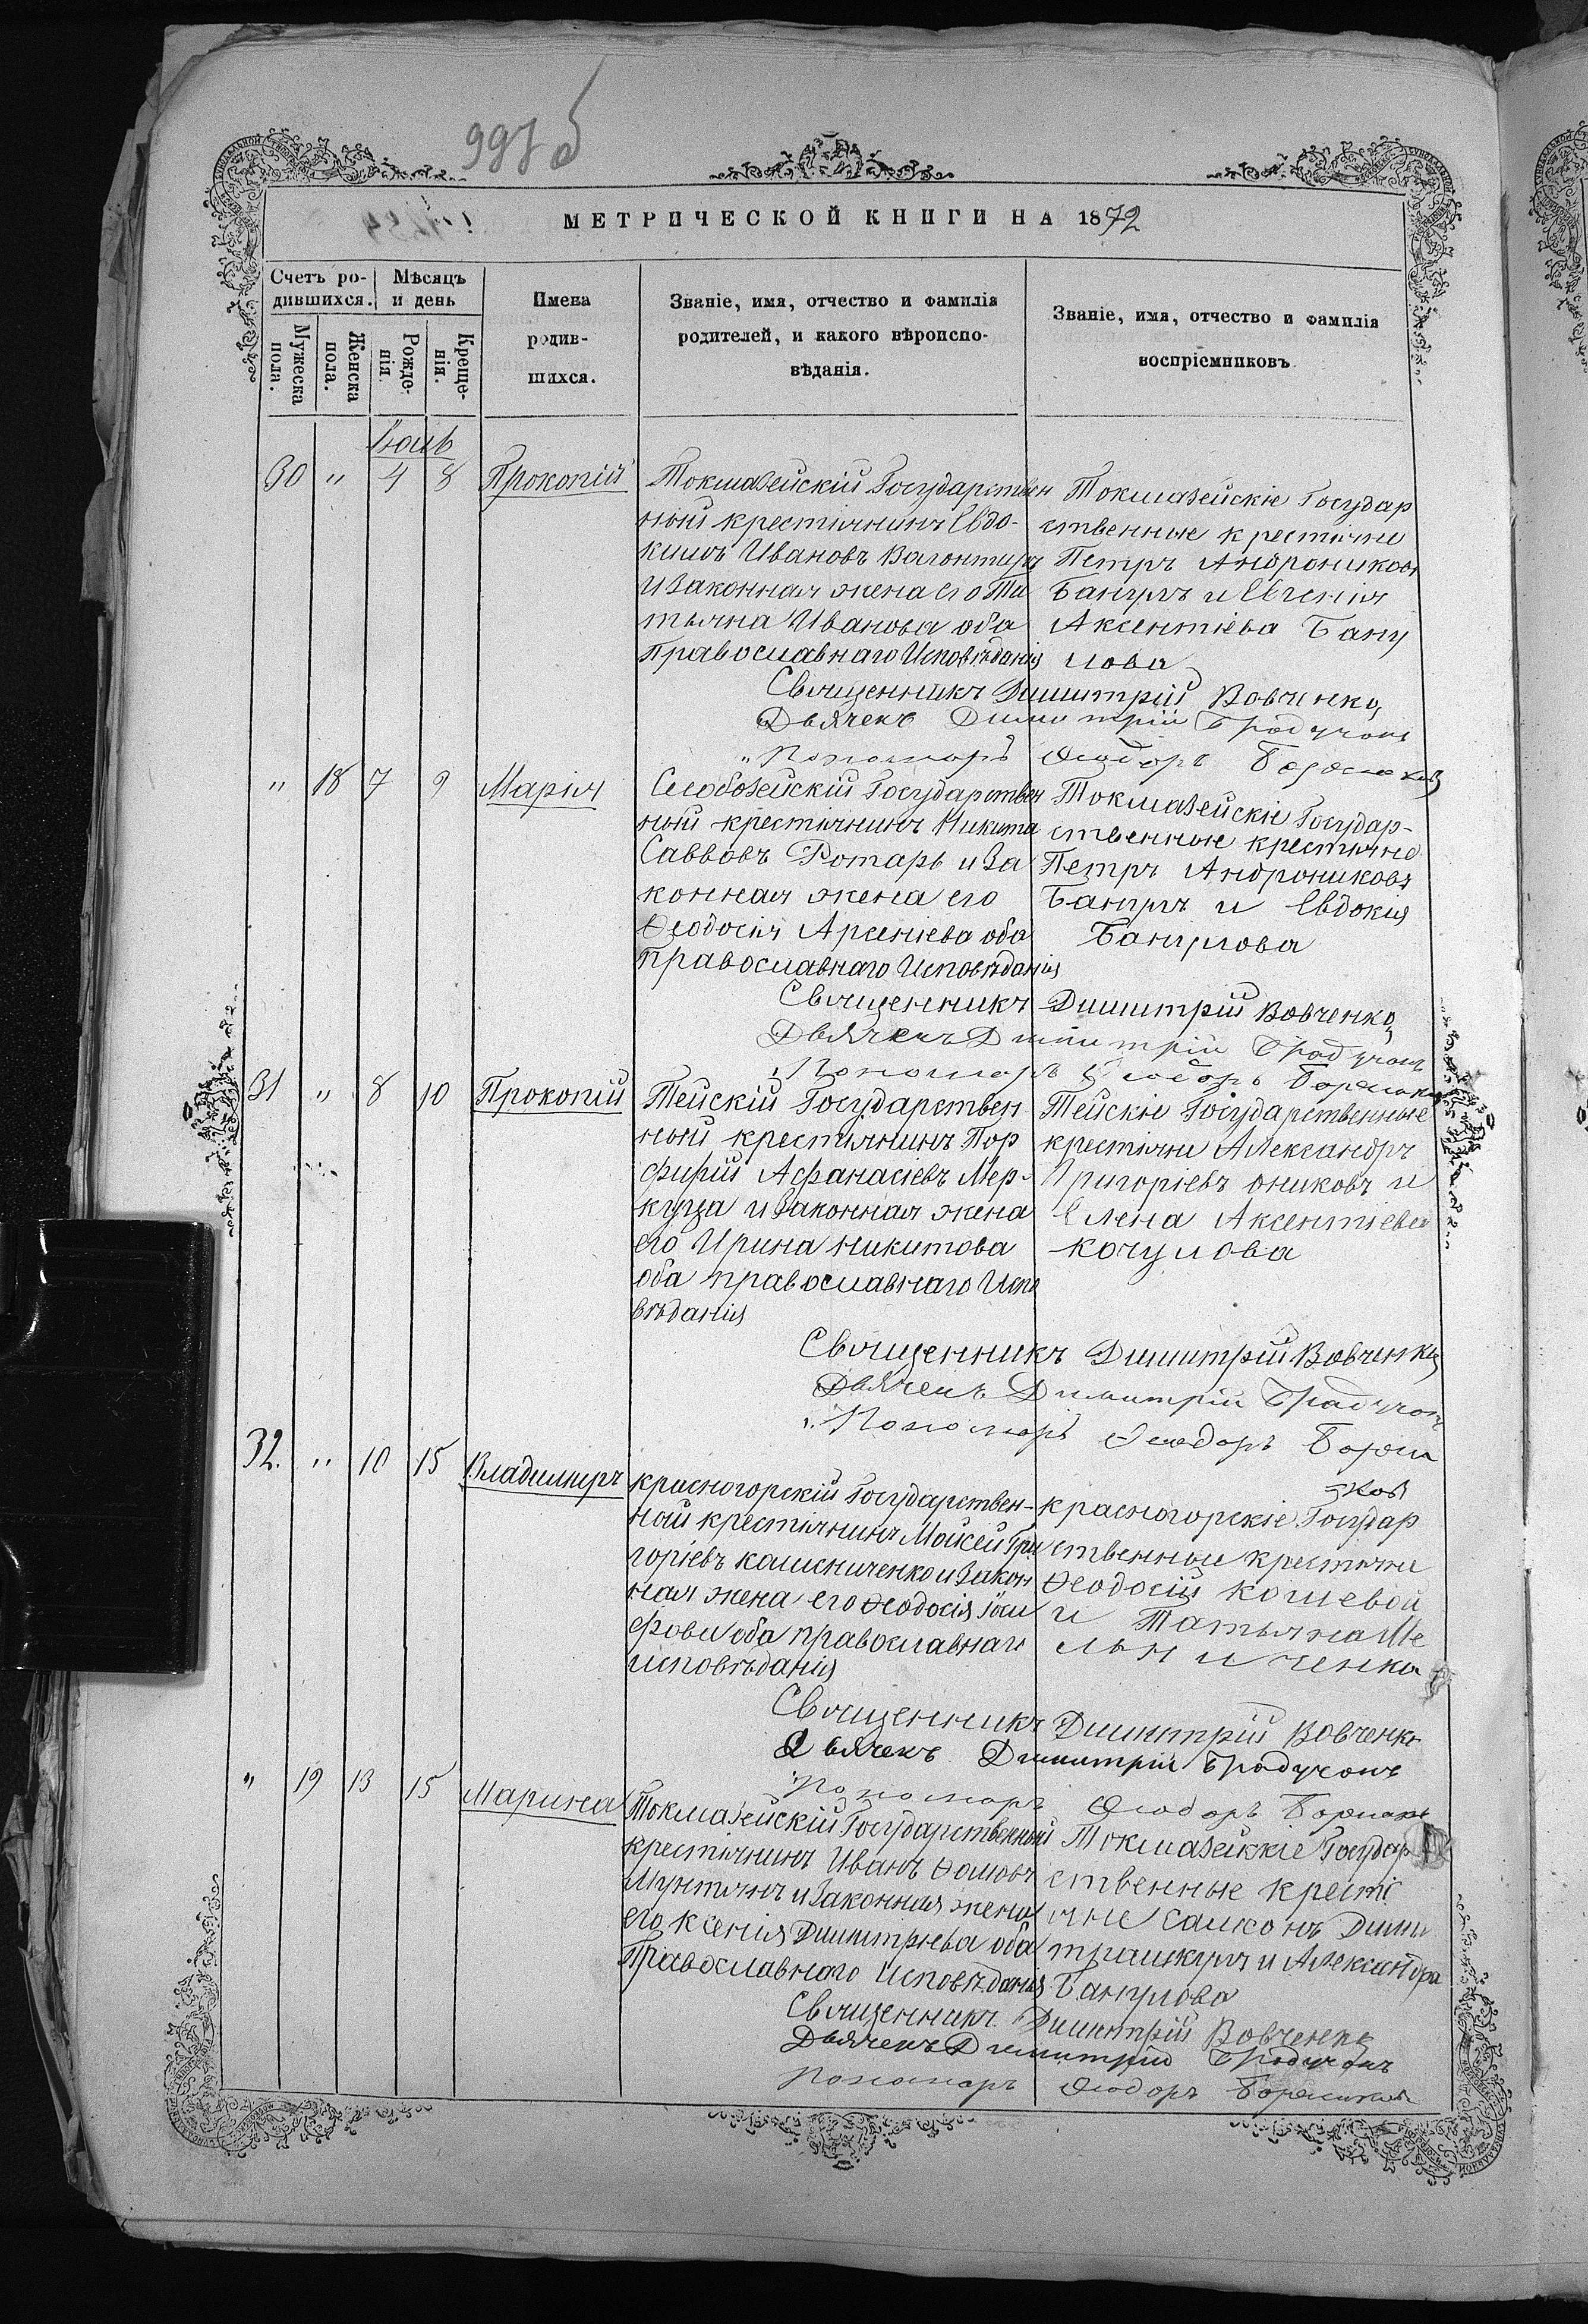 997 б
МЕТРИЧЕСКОЙ КНИГИ НА 1872
Счетъ ро-
дившихся.
Мѣсяцъ
и день
Мужеска
пола.
Женска
пола.
Рожде-
нія.
Креще-
нія.
Имена
родив-
шихся.
Званіе, имя, отчество и фамилія
родителей, и какого вѣроиспо-
вѣданія.
Званіе, имя, отчество и фамилія
воспріемниковъ
Іюль
30 " 4 8 Прокопій
Токмазейскій Государствен
ный крестянинъ Евдо-
кимъ Ивановъ Вагонтиръ
и Законная жена его Та
тьяна Иванова оба
православнаго Исповѣданія
Токмазейскіе Государ
ственные крестяне
Петръ Андрониковъ
Банулъ и Евгенія
Аксентіева Бану
лова
Священникъ Димитрій Вовченко
Дьячекъ Димитрій
Пономарь Ѳеодоръ
" 18 7 9 Марія
Слободзейскій Государствен
ный крестянинъ Никита
Саввовъ Ротарь и За
конная жена его
Ѳеодосія Арсеніева оба
православнаго Исповѣданія
Токмазейскіе Государ-
ственные крестяне
Петръ Андрониковъ
Банулъ и Евдокія
Банулова
Священникъ Димитрій Вовченко
Дьячекъ Димитрій
Пономарь Ѳеодоръ
31 " 8 10 Прокопій
Тейскій Государствен
ный крестянинъ Пор
фирій Афанасіевъ Мер-
куца и Законная жена
его Ирина никитова
оба православнаго Испо
вѣданія
Тейскіе Государственные
крестяне Александръ
Григоріевъ ониковъ и
Елена Аксентіева
кочулова
Священникъ Димитрій Вовченко
Дьячекъ Димитрій
Пономарь Ѳеодоръ
32. " 10 15 Владимиръ
красногорскій Государствен-
ный крестянинъ Мойсей Гри
горіевъ калиниченко и Закон
ная жена его Ѳеодосія Іоси
фова оба православнаго
исповѣданія
красногорскіе Государ
ственные крестяне
Ѳеодосій кошевой
и Татьяна Ме
льниченко
Священникъ Димитрій Вовченко
Дьячекъ Димитрій
Пономарь Ѳеодоръ
" 19 13 15 Марина
Токмазейскій Государственный
крестянинъ Иванъ Ѳомовъ
Мунтянъ и Законная жена
его Ксенія Димитріева оба
Православнаго Исповѣданія
Токмазейскіе Государ
ственные крестя
не Самсонъ Дими
трашкулъ и Александра
Банулова
Священникъ Димитрій Вовченко
Дьячекъ Димитрій
Пономарь Ѳеодоръ